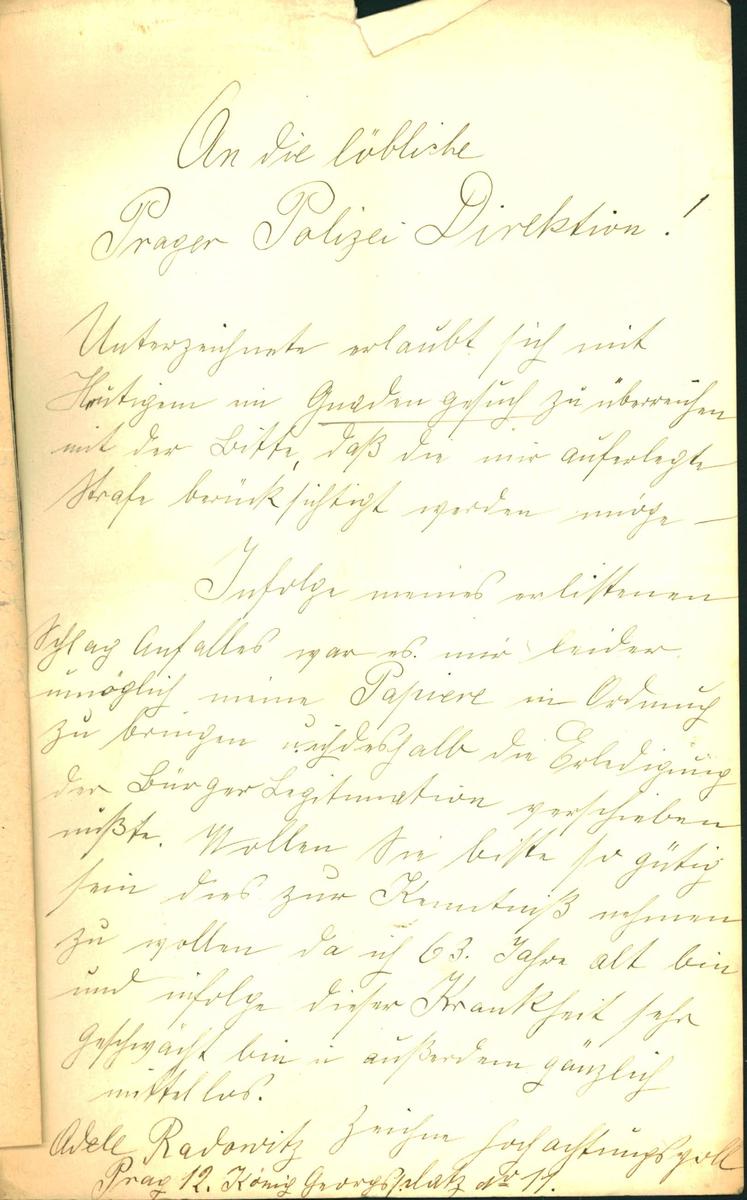 An die löbliche
Prager Polizei Direktion!
Unterzeichnete erlaubt sich mit
Heutigem ein Gnadengesuch zu überreichen
mit der Bitte, daß die mir auferlegte
Strafe berücksichtigt werden möge –
Infolge meines erlittenen
Schlag Anfalles war es mir leider
unmöglich meine Papiere in Ordnung
zu bringen deshalb die Erledigung
der Bürger Legitimation verschieben
mußte. Wollen Sie bitte so gütig
sein dies zur Kenntniß nehmen
zu wollen da ich 63. Jahre alt bin
und infolge dieser Krankheit sehr
geschwächt bin u außerdem gänzlich
mittellos.
Zeichne hochachtungsvoll
Adele Radowitz
Prag 12. König Georgsplatz No 11.